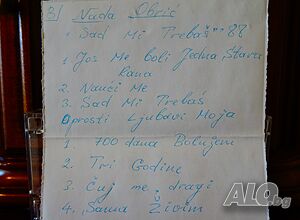 3) Nada Obrić
Sad Mi Trebaš - 88
1. Još Me boli Jedna Stara
Rana
2. Nauči Me
3. Sad Mi Trebaš
Oprosti Ljubavi Moja
1. 700 dana Bolujem
2. Tri Godine
3. Čuj me, dragi
4. Sama Živim
ALO.bg